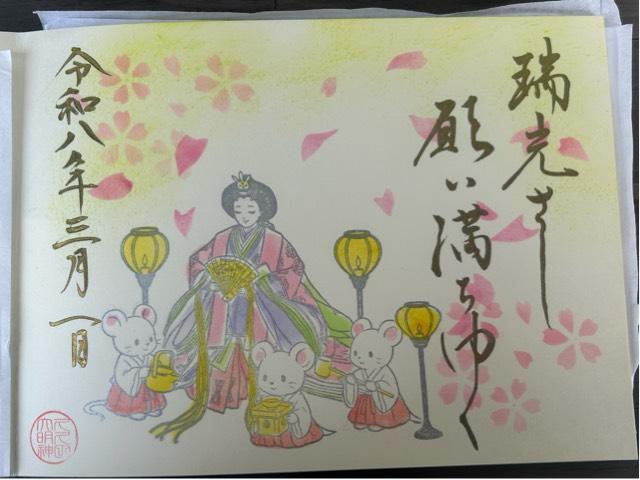 瑞光さし
願い満ちゆく
令和八年三月一日
大明神